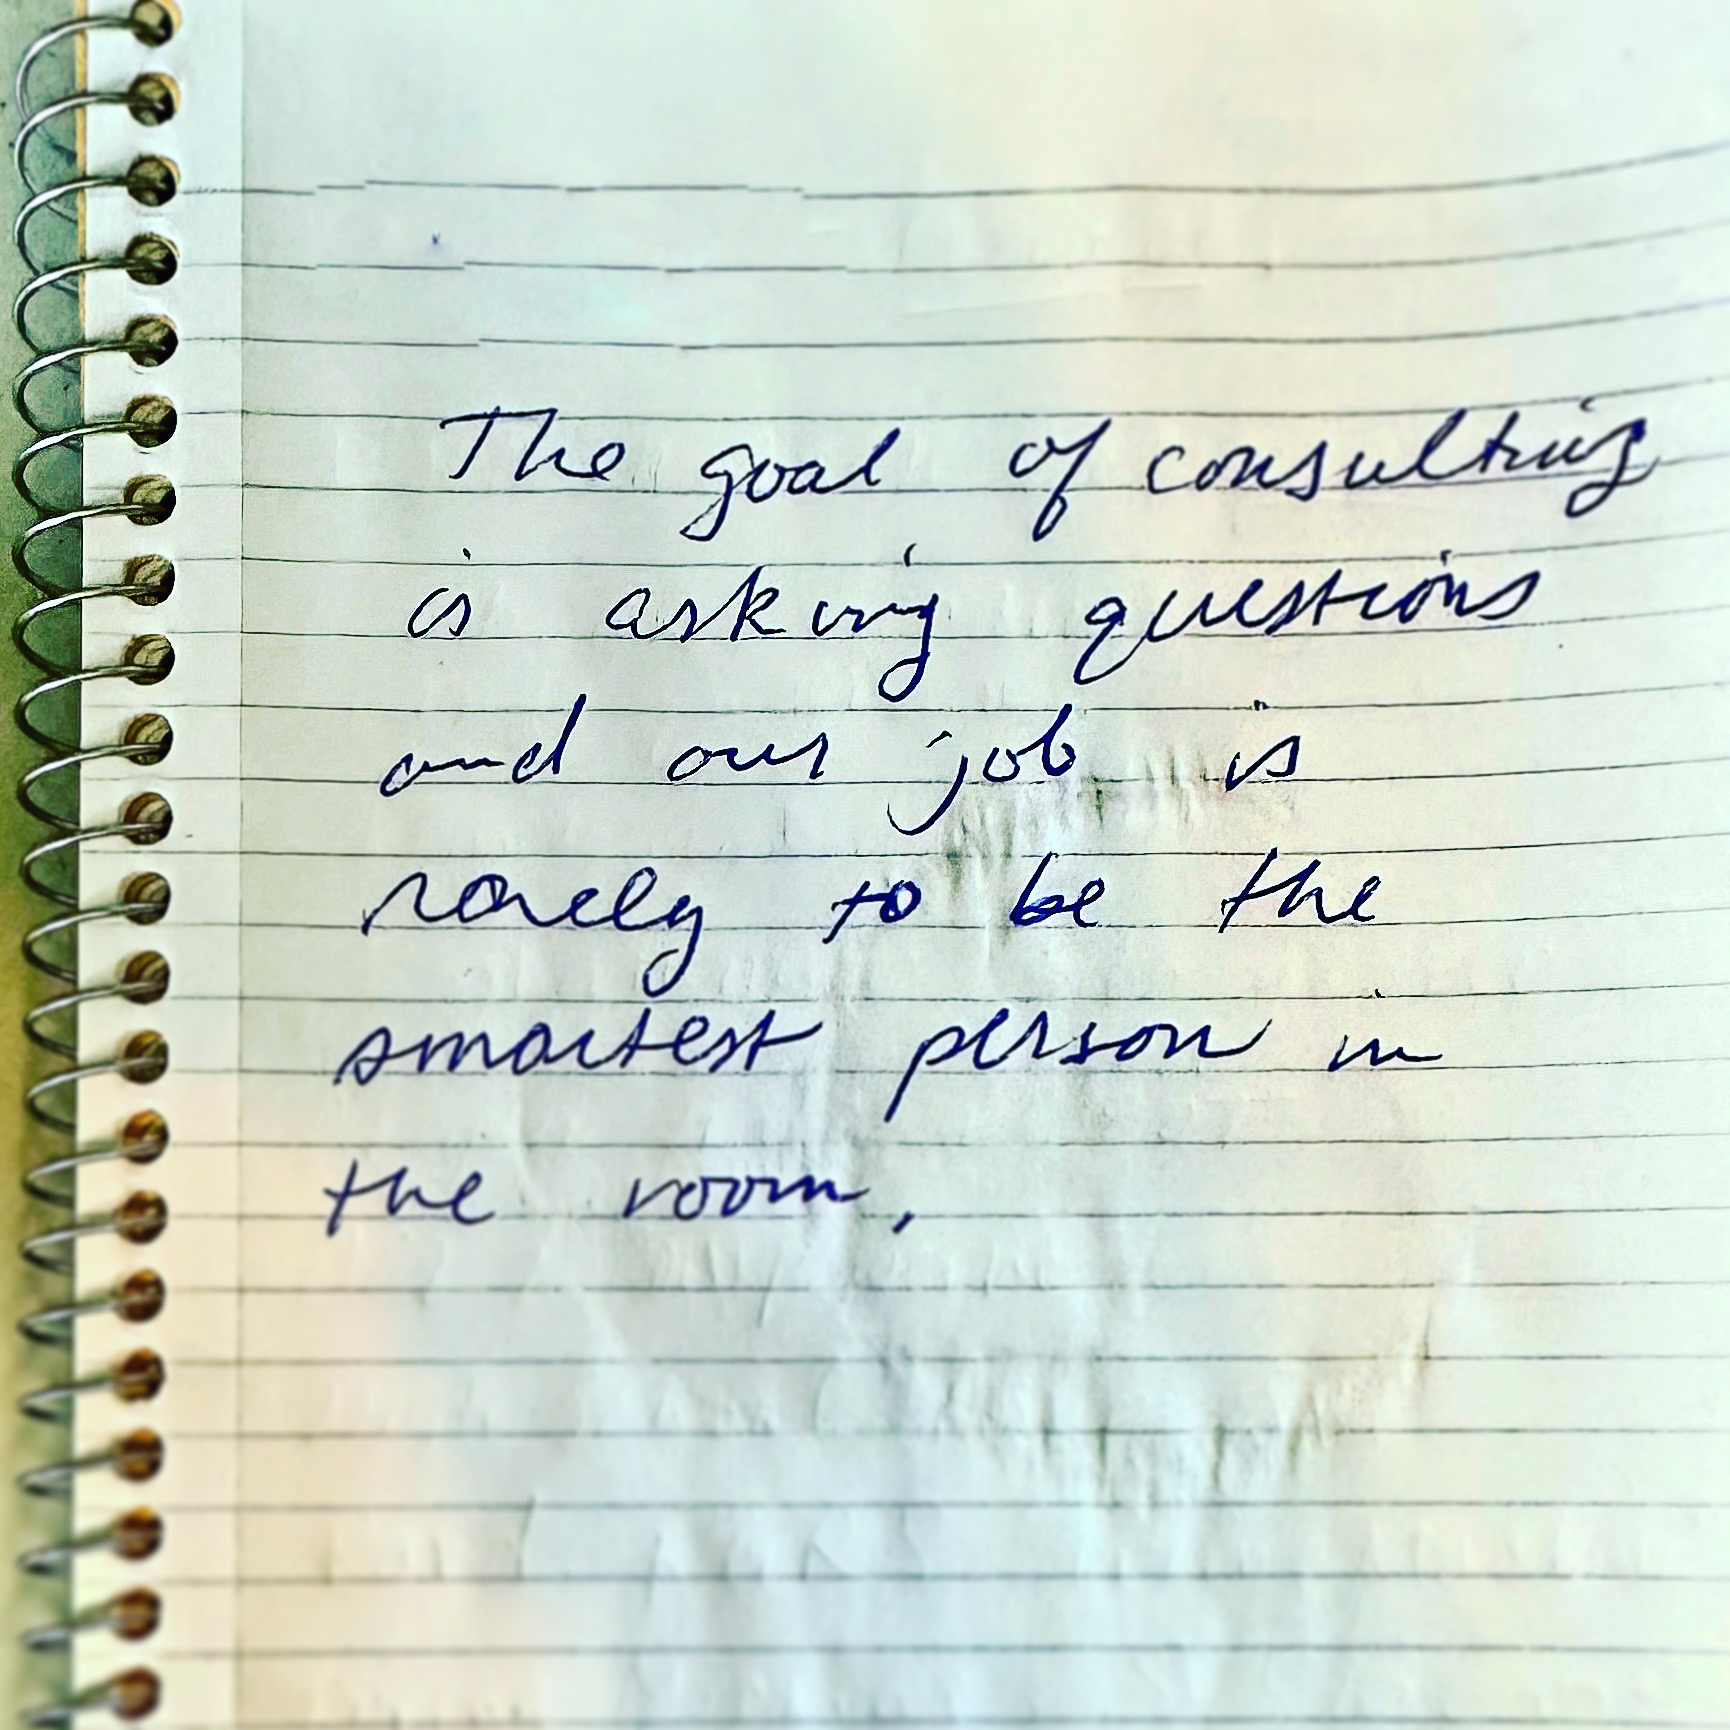 The goal of consulting
is asking questions
and our job is
rarely to be the
smartest person in
the room.